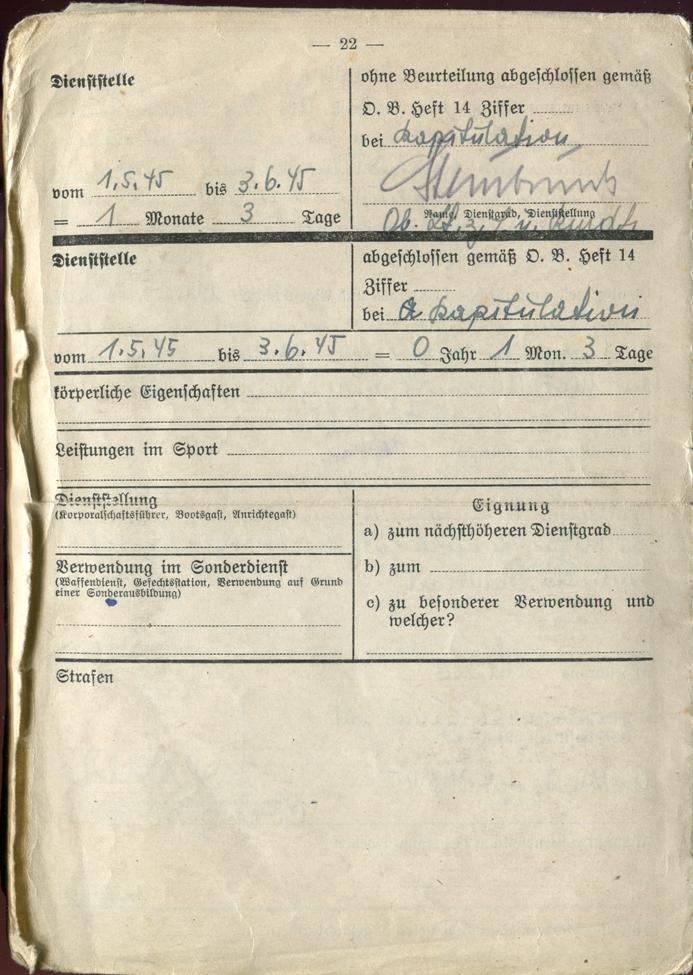 — 22 —
Dienststelle
ohne Beurteilung abgeschlossen gemäß
O. B. Heft 14 Ziffer
bei Kapitulation
vom 1.5.45 bis 3.6.45
= 1 Monate 3 Tage
Name, Dienstgrad, Dienststellung
Dienststelle
abgeschlossen gemäß O. B. Heft 14
Ziffer
bei Kapitulation
vom 1.5.45 bis 3.6.45 = 0 Jahr 1 Mon. 3 Tage
körperliche Eigenschaften
Leistungen im Sport
Dienststellung
(Korporalschaftsführer, Bootsgast, Anrichtegast)
Verwendung im Sonderdienst
(Waffendienst, Gefechtsstation, Verwendung auf Grund
einer Sonderausbildung)
Eignung
a) zum nächsthöheren Dienstgrad
b) zum
c) zu besonderer Verwendung und
welcher?
Strafen